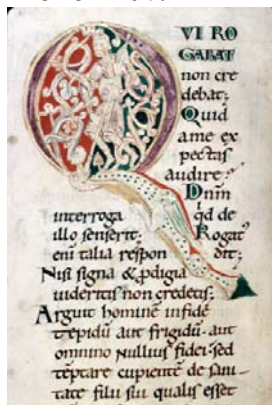 QVI RO
GABAT
non cre
debat;
Quid
a me ex
pectas
audire?
Dnm
interroga qd de
illo senserit; Rogat
eni talia respon dit;
Nisi signa & pdigia
uideritis non credetis;
Arguit homine infide
tepidu aut frigidu. aut
omnino nullius fidei. sed
teptare cupiente de sani
tate filii sui qualis esset